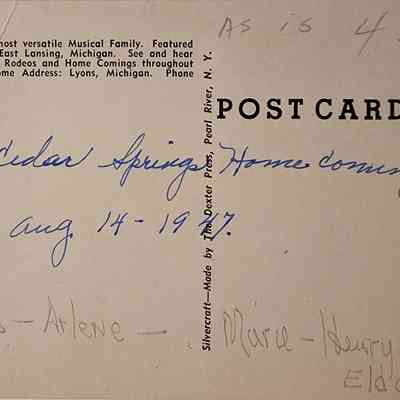 most versatile Musical Family. Featured
East Lansing, Michigan. See and hear
Rodeos and Home Comings throughout
ome Address: Lyons, Michigan. Phone
As is 4
POST CARD
Cedar Springs Home Coming
Aug 14-1947.
Silvercraft—Made by The Dexter Press, Pearl River, N. Y.
s - Arlene - Marie - Henry
Eld